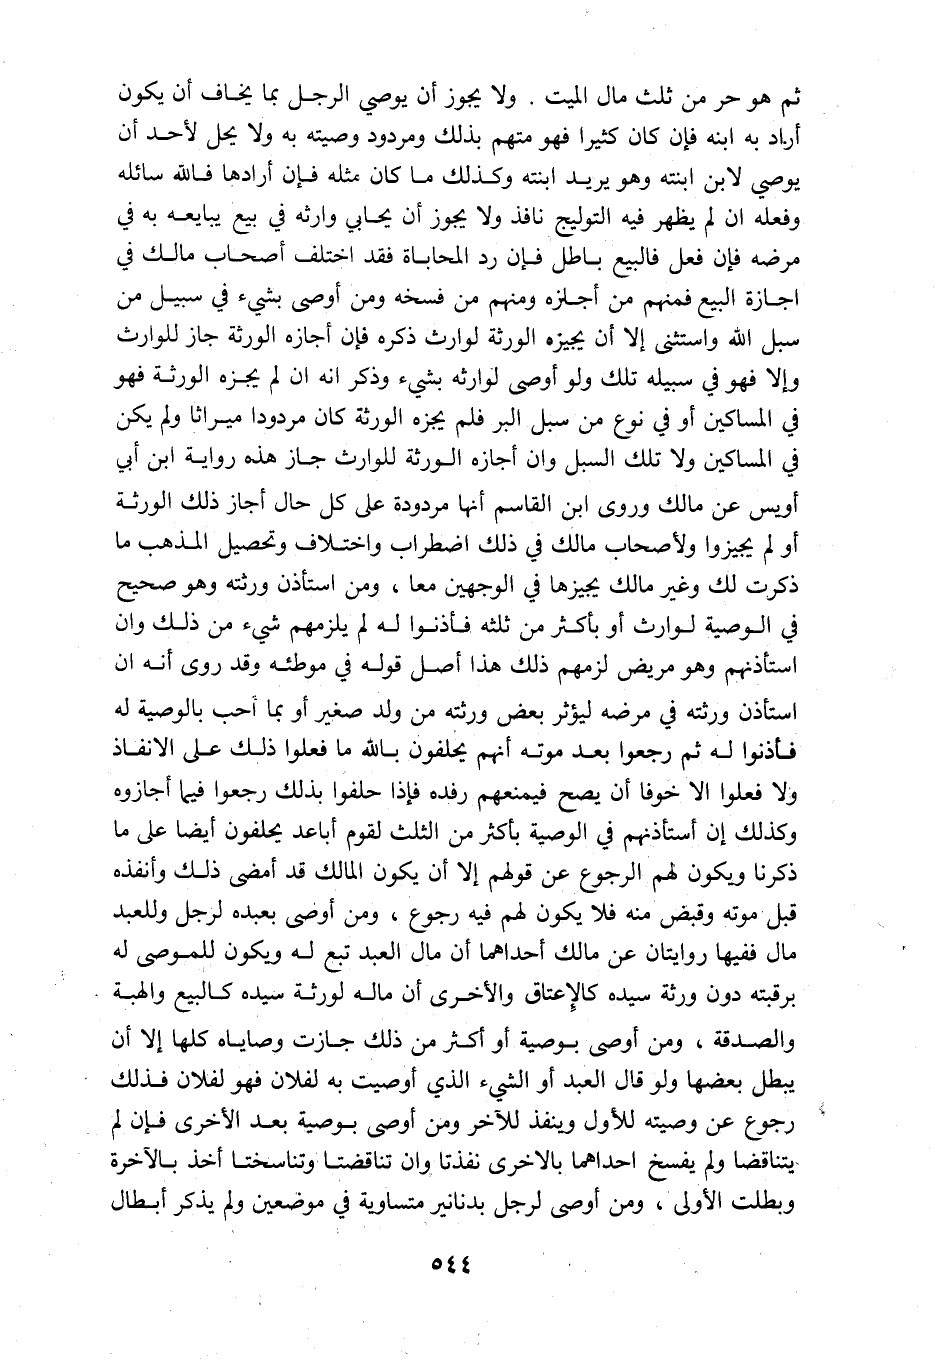 ثم هو حر من ثلث مال الميت . ولا يجوز أن يوصي الرجل بما يخاف أن يكون
أراد به ابنه فإن كان كثيرا فهو متهم بذلك ومردود وصيته به ولا يحل لأحد أن
يوصي لابن ابنته وهو يريد ابنته وكذلك ما كان مثله فإن أرادها فالله سائله
وفعله ان لم يظهر فيه التوليج نافذ ولا يجوز أن يحابي وارثه في بيع يبايعه به في
مرضه فإن فعل فالبيع باطل فإن رد المحاباة فقد اختلف أصحاب مالك في
اجازة البيع فمنهم من أجازه ومنهم من فسخه ومن أوصى بشيء في سبيل من
سبل الله واستثنى إلا أن يجيزه الورثة لوارث ذكره فإن أجازه الورثة جاز للوارث
وإلا فهو في سبيله تلك ولو أوصى لوارثه بشيء وذكر انه ان لم يجزه الورثة فهو
في المساكين أو في نوع من سبل البر فلم يجزه الورثة كان مردودا ميراثا ولم يكن
في المساكين ولا تلك السبل وان أجازه الورثة للوارث جاز هذه رواية ابن أبي
أويس عن مالك وروى ابن القاسم أنها مردودة على كل حال أجاز ذلك الورثة
أو لم يجيزوا ولأصحاب مالك في ذلك اضطراب واختلاف وتحصيل المذهب ما
ذكرت لك وغير مالك يجيزها في الوجهين معا ، ومن استأذن ورثته وهو صحيح
في الوصية لوارث أو بأكثر من ثلثه فأذنوا له لم يلزمهم شيء من ذلك وان
استأذنهم وهو مريض لزمهم ذلك هذا أصل قوله في موطئه وقد روى أنه ان
استأذن ورثته في مرضه ليؤثر بعض ورثته من ولد صغير أو بما أحب بالوصية له
فأذنوا له ثم رجعوا بعد موته أنهم يحلفون بالله ما فعلوا ذلك على الانفاذ
ولا فعلوا الا خوفا أن يصح فيمنعهم رفده فإذا حلفوا بذلك رجعوا فيما أجازوه
وكذلك إن أستأذنهم في الوصية بأكثر من الثلث لقوم أباعد يحلفون أيضا على ما
ذكرنا ويكون لهم الرجوع عن قولهم إلا أن يكون المالك قد أمضى ذلك وأنفذه
قبل موته وقبض منه فلا يكون لهم فيه رجوع ، ومن أوصى بعبده لرجل وللعبد
مال ففيها روايتان عن مالك أحداهما أن مال العبد تبع له ويكون للموصى له
برقبته دون ورثة سيده كالإعتاق والأخرى أن ماله لورثة سيده كالبيع والهبة
والصدقة ، ومن أوصى بوصية أو أكثر من ذلك جازت وصاياه كلها إلا أن
يبطل بعضها ولو قال العبد أو الشيء الذي أوصيت به لفلان فهو لفلان فذلك
رجوع عن وصيته للأول وينفذ للآخر ومن أوصى بوصية بعد الأخرى فإن لم
يتناقضا ولم يفسخ احداهما بالاخرى نفذتا وان تناقضتا وتناسختا أخذ بالآخرة
وبطلت الأولى ، ومن أوصى لرجل بدنانير متساوية في موضعين ولم يذكر أبطال
٥٤٤